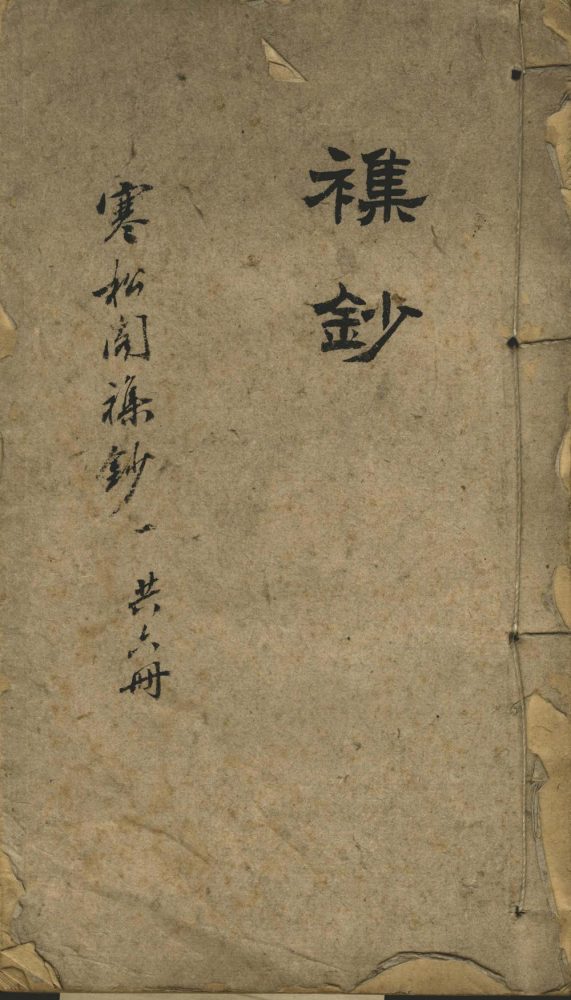 襍鈔
寒松閣襍鈔一 共六冊